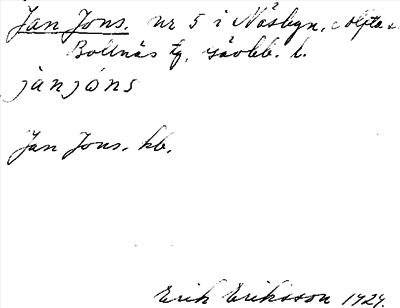 Jan Jons. nr 5 i Näsbyn,
Bollnäs tg, Gävleb. l.
jànjóns
Jan Jons. kb.
Erik Eriksson 1929.